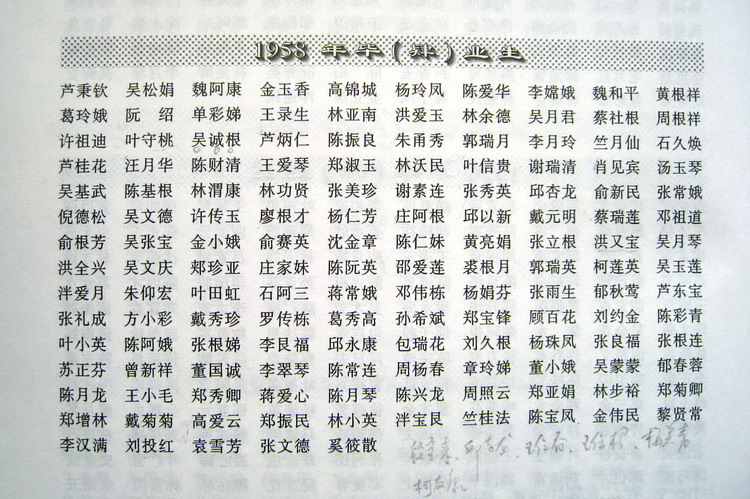 1958 年毕(肄)业生
芦秉钦 吴松娟 魏阿康 金玉香 高锦城 杨玲凤 陈爱华 李嫦娥 魏和平 黄根祥
葛玲娥 阮绍 单彩娣 王录生 林亚南 洪爱玉 林余德 吴月君 蔡社根 周根祥
许祖迪 叶守桃 吴诚根 芦炳仁 陈振良 朱甬秀 郭瑞月 李月玲 竺月仙 石久焕
芦桂花 汪月华 陈财清 王爱琴 郑淑玉 林沃民 叶信贵 谢瑞清 肖见宾 汤玉琴
吴基武 陈基根 林渭康 林功贤 张美珍 谢素连 张秀英 邱杏龙 俞新民 张常娥
倪德松 吴文德 许传玉 廖根才 杨仁芳 庄阿根 邱以新 戴元明 蔡瑞莲 邓祖道
俞根芳 吴张宝 金小娥 俞赛英 沈金章 陈仁妹 黄亮娟 张立根 洪又宝 吴月琴
洪全兴 吴文庆 郏珍亚 庄家妹 陈阮英 邵爱莲 裘根月 郭瑞英 柯莲英 吴玉莲
泮爱月 朱仰宏 叶田虹 石阿三 蒋常娥 邓伟栋 杨娟芬 张雨生 郁秋莺 芦东宝
张礼成 方小彩 戴秀珍 罗传栋 葛秀高 孙希斌 郑宝锋 顾百花 刘约金 陈彩青
叶小英 陈阿娥 张根娣 李艮福 邱永康 包瑞花 刘久根 杨珠凤 张良福 张根连
苏正芬 曾新祥 董国诚 李翠琴 陈常连 周杨春 章玲娣 董小娥 吴蒙蒙 郁春蓉
陈月龙 王小毛 郑秀卿 蒋爱心 陈月琴 陈兴龙 周照云 郑亚娟 林步裕 郑菊卿
郑增林 戴菊菊 高爱云 郑振民 林小英 泮宝艮 竺桂法 陈宝凤 金伟民 黎贤常
李汉满 刘投红 袁雪芳 张文德 奚筱散